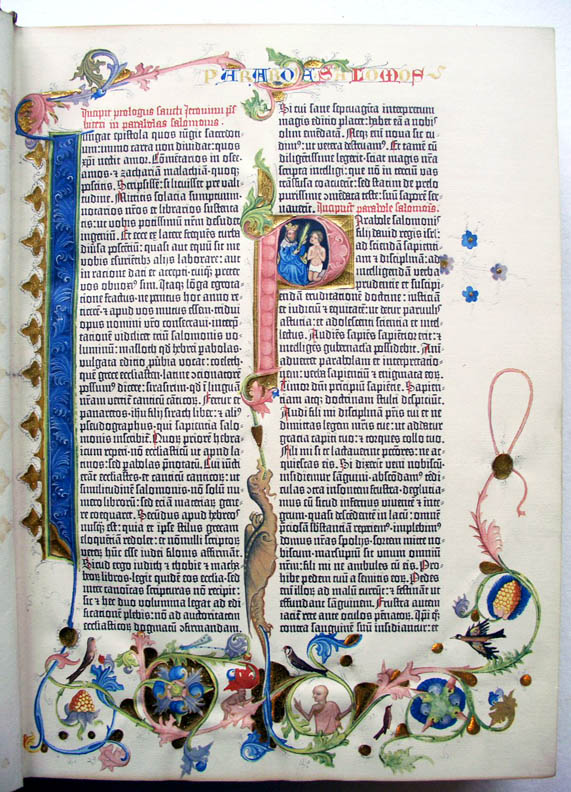 PARABOLA SALOMOIS
Incipit prologus sancti Jeronimi
in parabolas salomonis
Iungat epistola quos iungit sacerdo-
ium: immo carta non dividat: quos
xp̄i nectit amor. Cōmētarios in osee.
amos. ⁊ zachariam malachiā· quoq;
poscitis. Scripsissē: si licuisset pre vali-
tudine. Mittitis solacia sumptuum.
notarios nr̄os et librarios sustenta-
tis: ut vobis potissimū nr̄m desudet
ingeniū. Et ecce ex latere frequēs turba
diversa poscētiū: quasi aut equū sit me
vobis esurientib; aliis laborare: aut
in ratione dati et accepti· cuiq̄; preter
vos obnoxi⁹ sim. Itaq; lōga egrota-
tione fractus· ne penitus hoc anno re-
ticerē· ⁊ apud vos mutus essem· tridui
opus nomini vr̄o consecravi· interp̄-
tationem videlicet triū salomonis vo-
luminū: masloth q̄d hebrei pabolas·
vulgata editio p̄verbia vocat: coeleth·
quē grece ecclesiasten· latine cōcionatorē
possum⁹ dicere: sirasirim· qd̄ ī linguā
nr̄am vertit̄ canticū cāticor̄. Fertur et
panaretos· ihū filii sirach liber: ⁊ ali⁹
pseudographus· qui sapientia salo-
monis inscribit̄. Quor̄ priorē hebra-
icum reperi· nō ecclesiasticū ut apud la-
tinos: sed pabolas p̄notatū. Cui iūcti
erāt ecclesiastes· et canticū canticor̄: ut
similitudinē salomonis· nō solū nu-
mero librorū: sed etiā materiar̄ gene-
re coequaret. Secūdus apud hebreos
nusq̄ est: quia et ipse stilus grecam
eloquētiam redolet: et nōnulli scriptor̄
veter̄ hūc esse iudei filonis affirmāt.
Sicud ergo iudith ⁊ thobie ⁊ mach-
beor̄ libros· legit quidē eos eccl̄ia· sed
inter canonicas scripturas nō recipit:
sic ⁊ hec duo volumina legat ad edi-
ficationē plebis: nō ad auctoritatem
ecclesiasticor̄ dogmatū ɔfirmandam.
Si cui sane septuaginta interpretum
magis editio placet: habet eā a nobis
olim emēdatā. Neq; eni nova sic cu-
dim⁹: ut vetera destruam⁹. Et tamē cū
diligētissime legerit· sciat magis nr̄a
scripta intelligi: que nō in terciū vas
trāsfusa coacuerīt: sed statim de prelo
purissime ɔmēdata teste: suū saporē ser-
vaverīt. Incipiūt parabole salomōis
Parabole salomonis
filii david regis isrl̄:
ad sciendā sapienti-
am ⁊ disciplinā: ad
intelligendā verba
prudentie et suscipi-
endā eruditationē doctrine: iusticiā
et iudiciū ⁊ equitatē: ut detur parvulis
astutia: et adolescenti scientia et intel-
lectus. Audiēs sapiēs sapientior erit: ⁊
intelligēs gubernacla possidebit. Ani-
advertet parabolam et interpretatio-
nem: verba sapientiū ⁊ enigmata eor̄.
Timor dn̄i principiū sapiētie. Sapienti-
am atq; doctrinam stulti despiciūt.
Audi fili mi disciplinā pr̄is tui et ne
dimittas legem mr̄is tue: ut addatur
gracia capiti tuo: ⁊ torques collo tuo.
Fili mi si te lactaverint pctōres: ne ac-
quiescas eis. Si dixerīt veni nobiscū·
insidiemur sanguini· abscōdam⁹ tedi-
culas ɔtra insontem frustra· degluti-
mus eū sicud infernus viventē ⁊ inte-
grum· quasi descēdentē in lacū: omnē
p̄ciosā substāciam reperiem⁹· implebim⁹
domus nr̄as spoliis· sortem mitte no-
biscum· marsupiū sit unum omniū
nr̄m: fili mi ne ambules cū eis. Pro-
hibe pedem tuū a semitis eor̄. Pedes
eni illor̄ ad malū currūt: ⁊ festināt ut
effundant sanguinem. Frustra autem
iacit̄ rete ante oculos pēnator̄. Ip̄i q̄;
contra sanguinē suū insidiantur: et